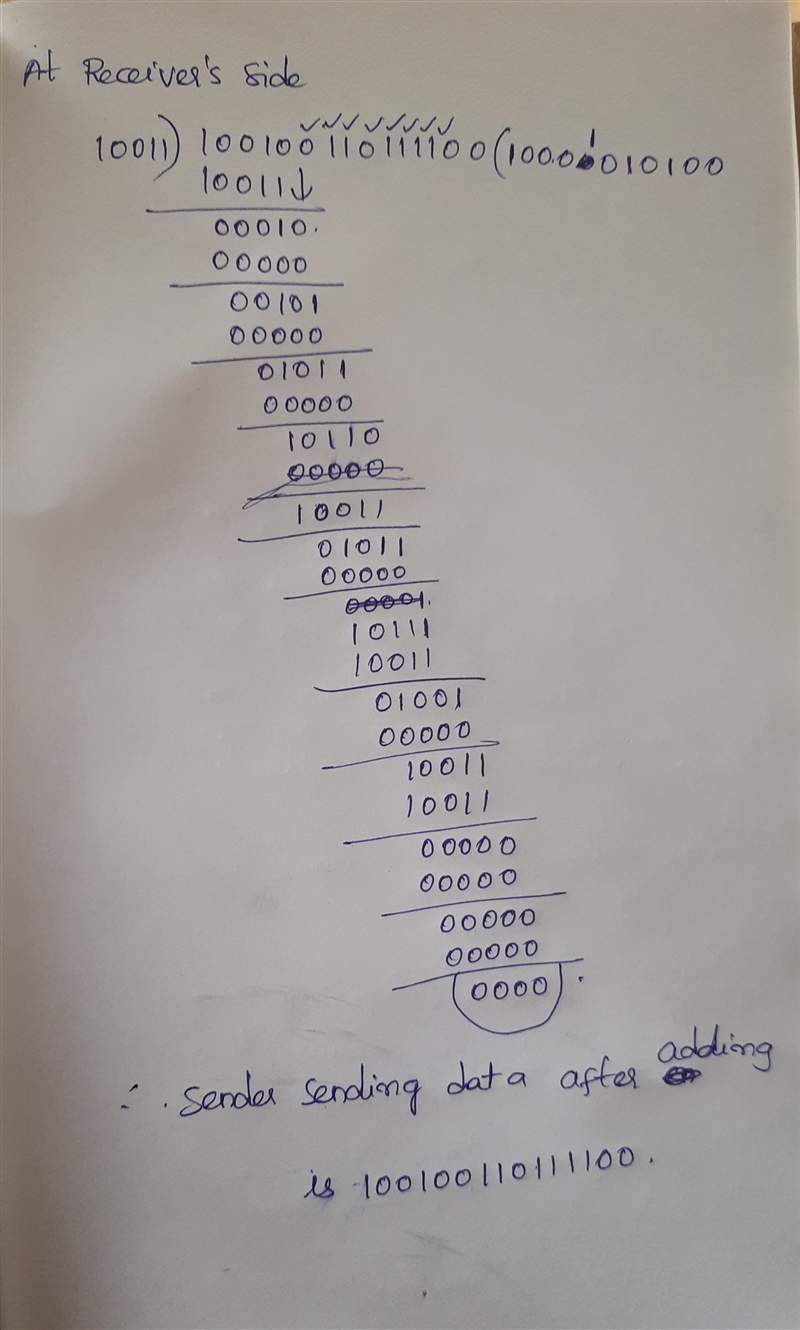 At Receiver's Side
10011) 100100110111100 (10001010100
10011↓
00010.
00000
00101
00000
01011
00000
10110
10011
01011
00000
10111
10011
01001
00000
10011
10011
00000
00000
00000
00000
0000.
∴. Sender sending data after adding
is 100100110111100.